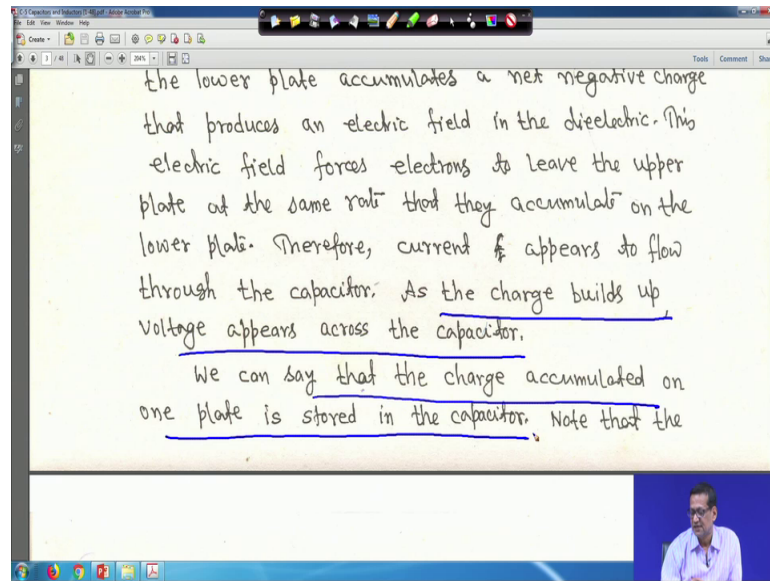 C-3 Capacitors and Inductors (1-48).pdf - Adobe Acrobat Pro
File Edit View Window Help
Create
3 / 48 204% Tools Comment Shar
the lower plate accumulates a net negative charge
that produces an electric field in the dieelectric. This
electric field forces electrons to leave the upper
plate at the same rate that they accumulate on the
lower plate. Therefore, current appears to flow
through the capacitor. As the charge builds up,
voltage appears across the capacitor.
We can say that the charge accumulated on
one plate is stored in the capacitor. Note that the